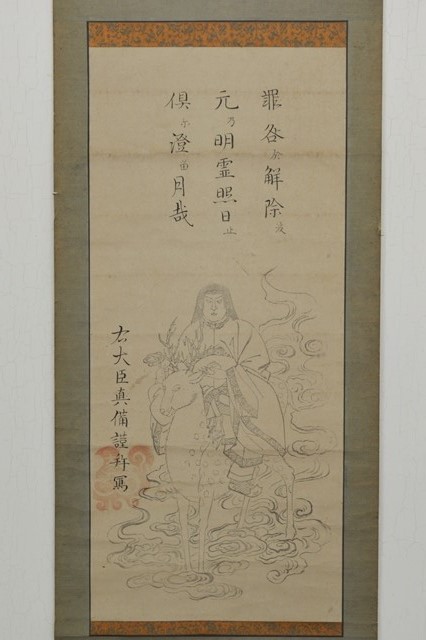 罪咎於解除波
元乃明霊照日止
倶尓澄畄月哉
右大臣真備謹拜寫